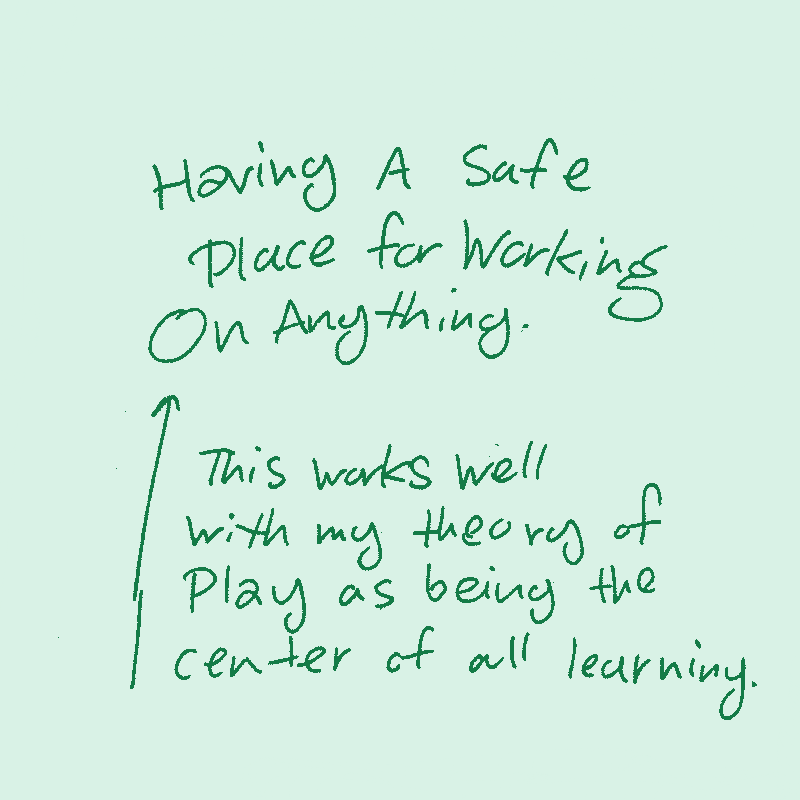 Having A Safe
Place for Working
On Anything.
This works well
with my theory of
Play as being the
center of all learning.